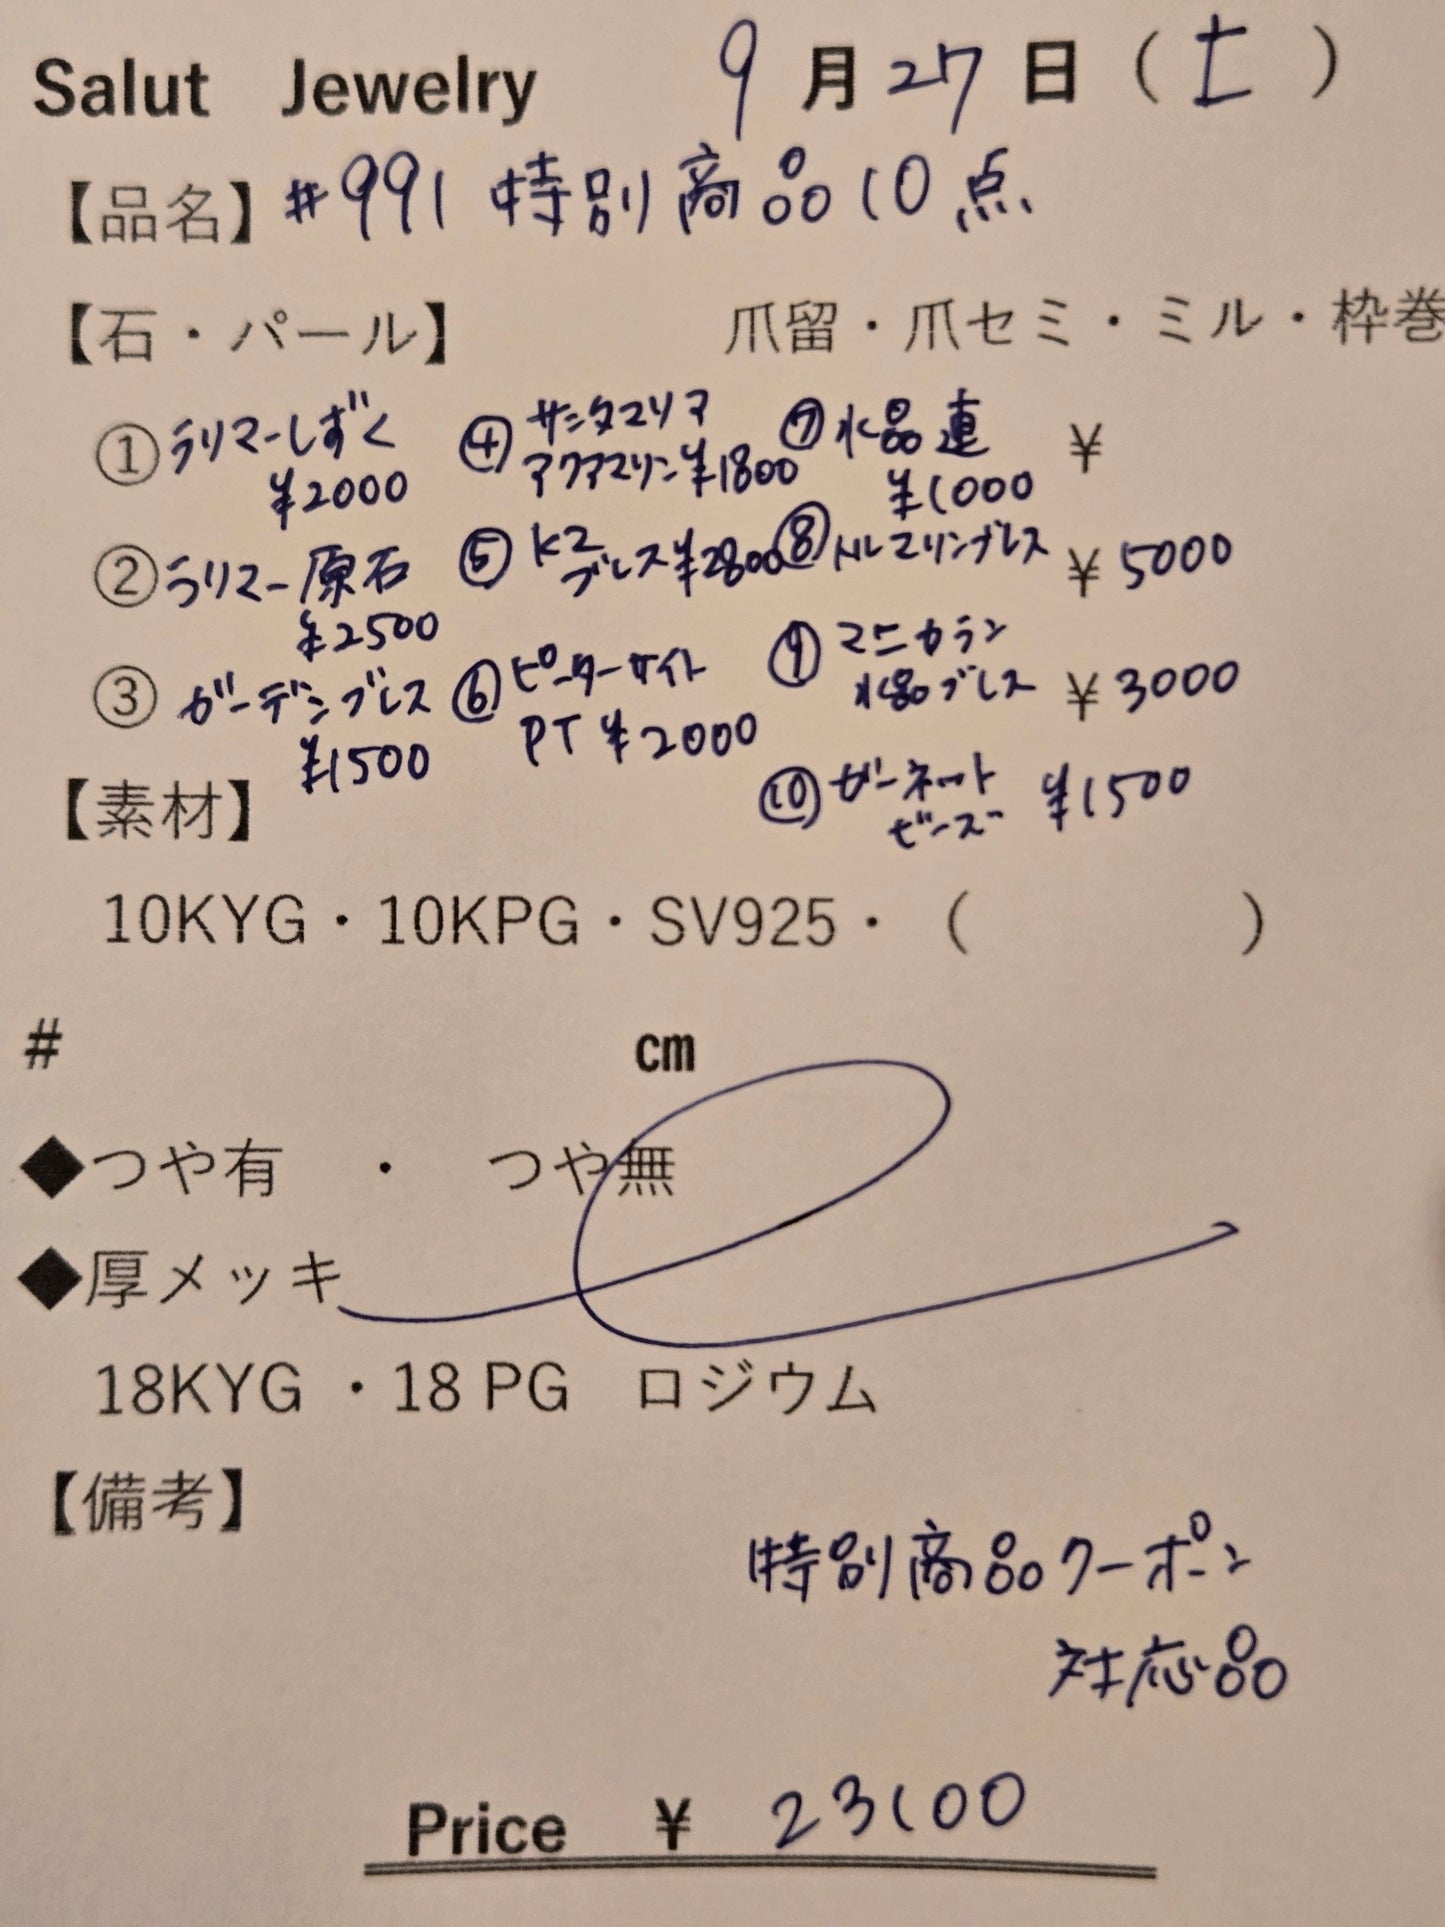 Salut Jewelry 9月27日（土）
【品名】#991 特別商品10点
【石・パール】 爪留・爪セミ・ミル・枠巻
①ラリマーしずく ④サンタマリア ⑦水晶連 ¥
¥2000 アクアマリン¥1800 ¥1000
②ラリマー原石 ⑤K2 ⑧トルマリンブレス ¥5000
¥2500 ブレス¥2800
③ガーデンブレス ⑥ピーターサイト ⑨マニカラン
¥1500 PT ¥2000 水晶ブレス ¥3000
⑩ガーネット ¥1500
ビーズ
【素材】
10KYG・10KPG・SV925・（ ）
# cm
◆つや有 ・ つや無
◆厚メッキ
18KYG ・18 PG ロジウム
【備考】
特別商品クーポン
対応品
Price ¥ 23100